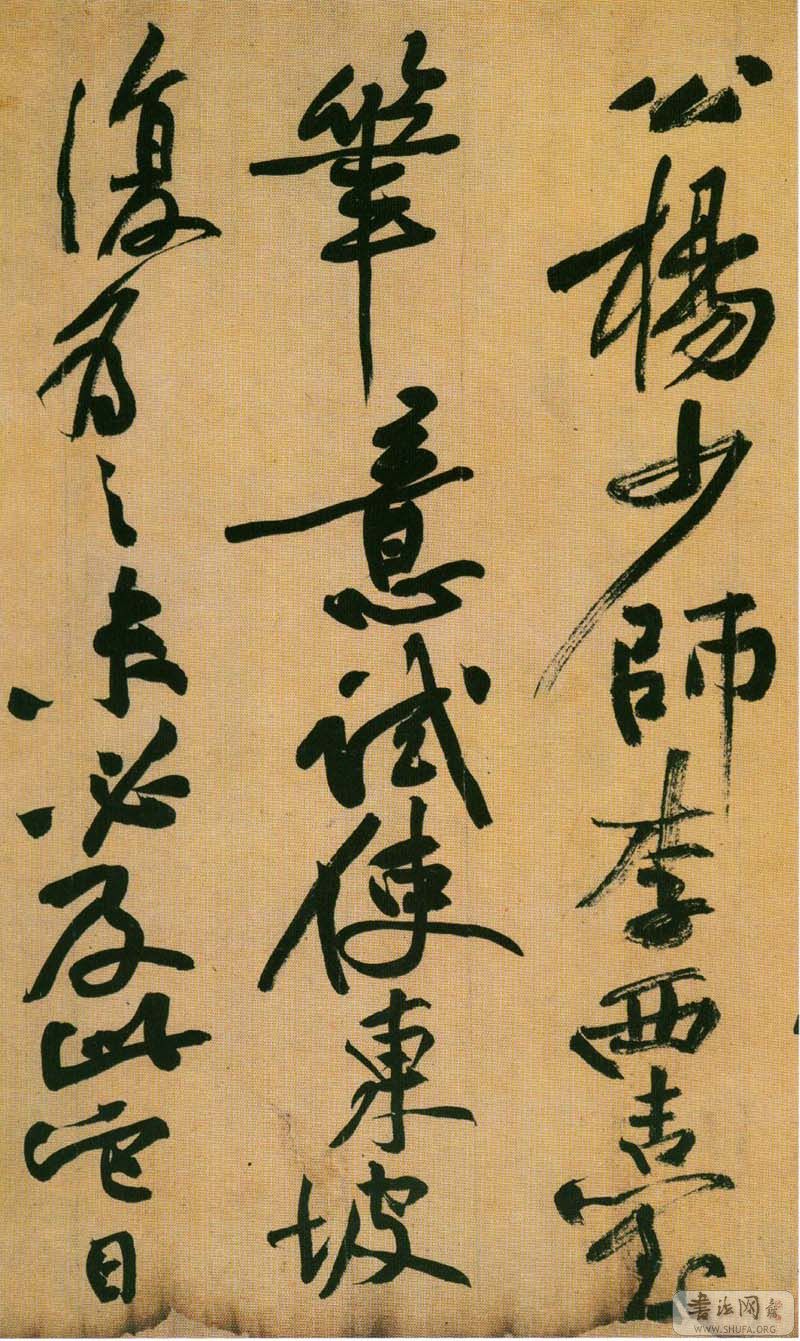 公楊少師李西臺
筆意試使東坡
復為之未必及此它日
书法网
WWW.SHUFA.ORG